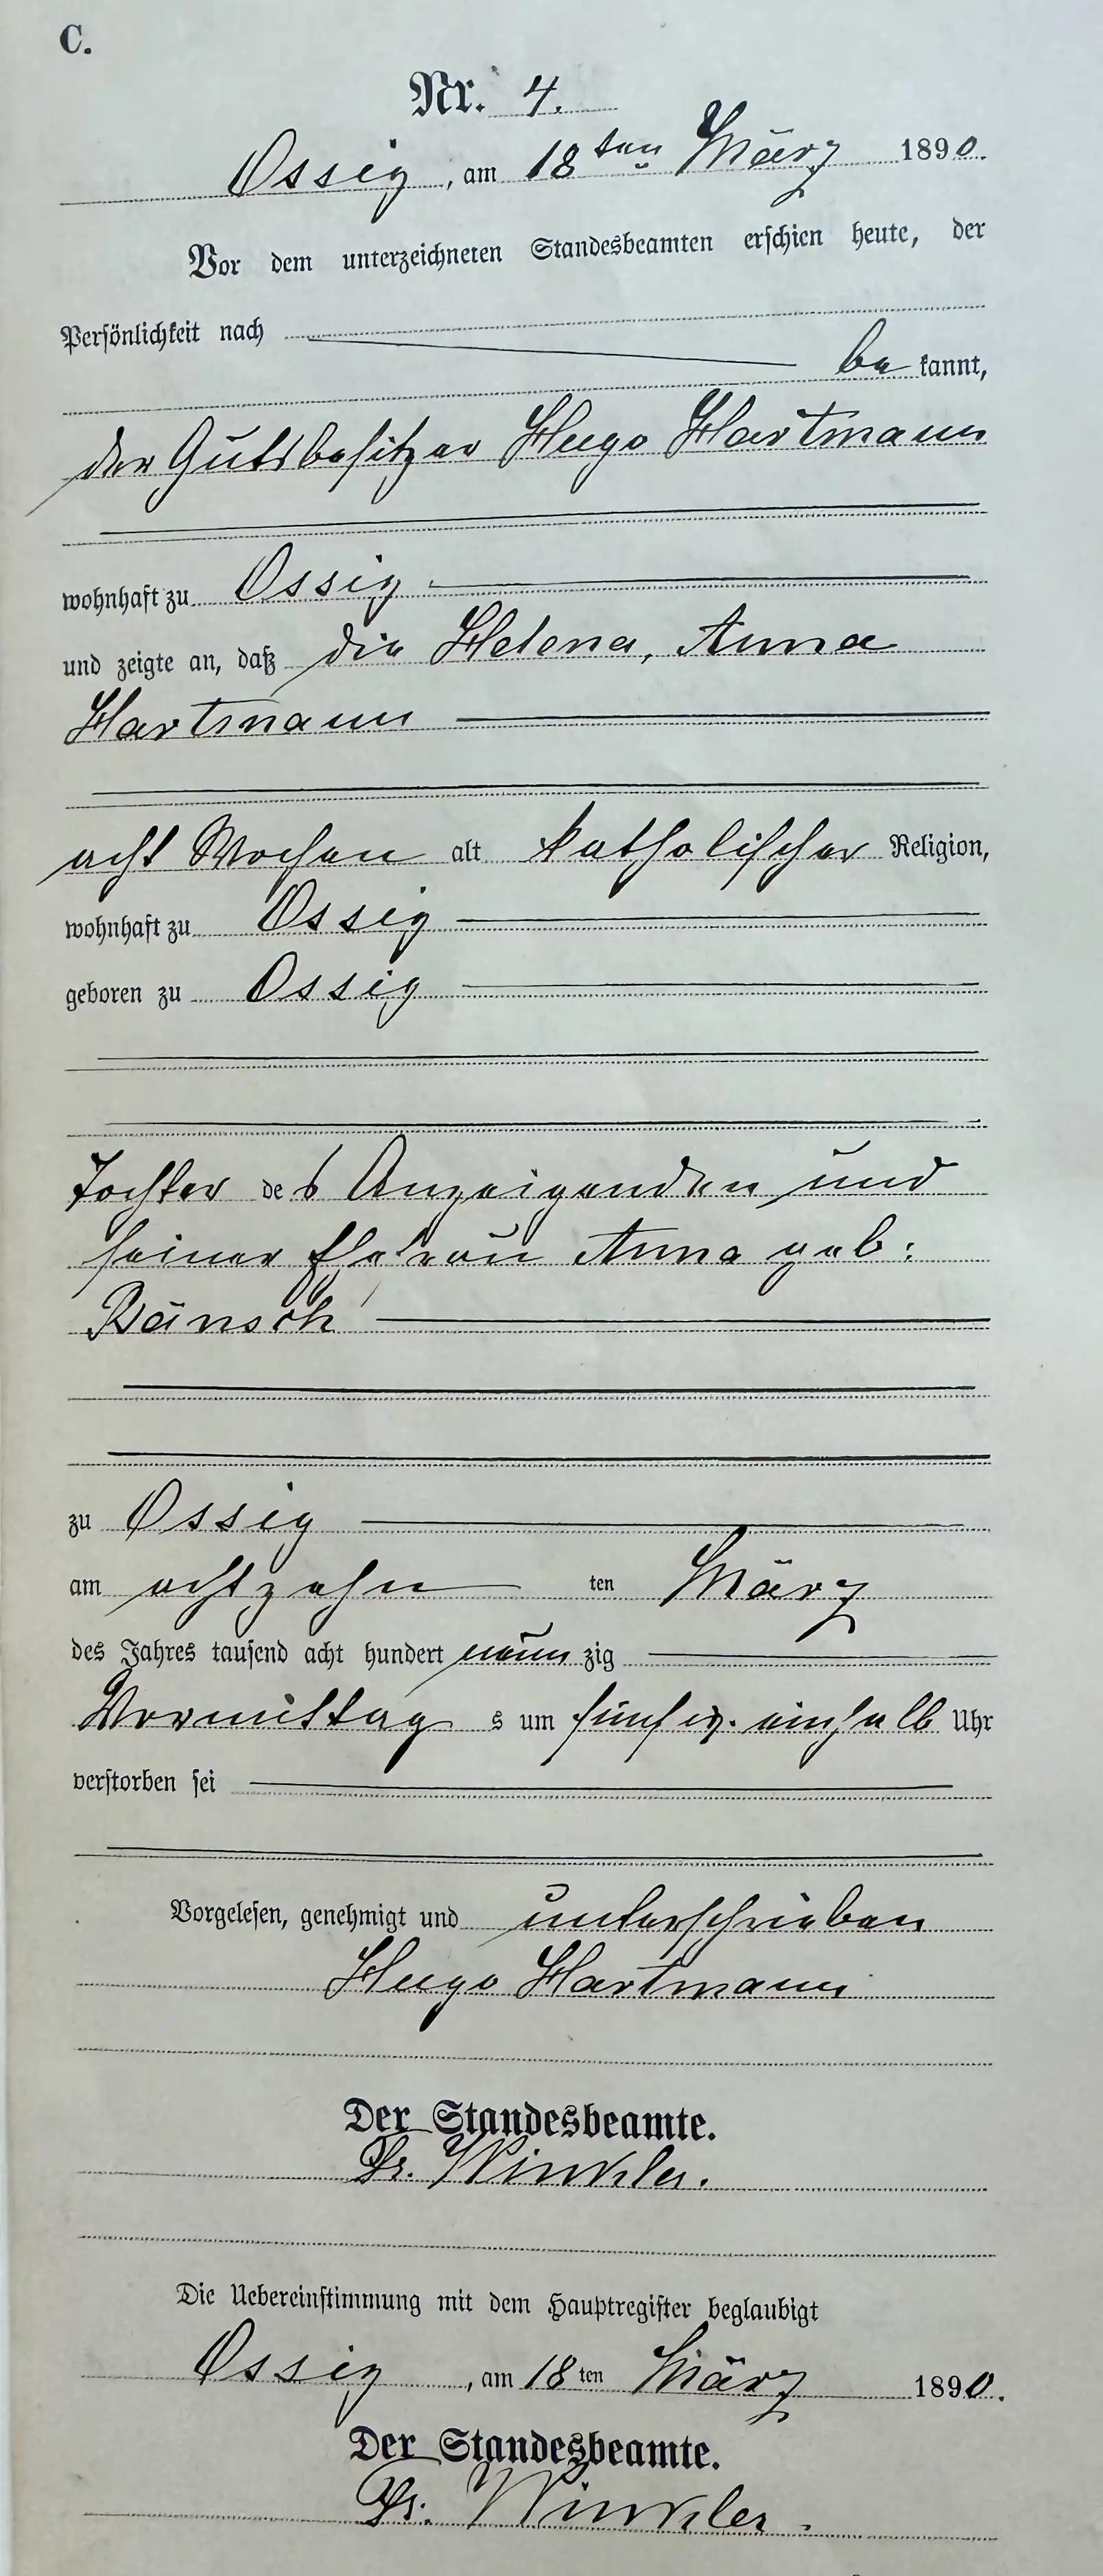 C.
Nr. 4.
Ossig, am 18ten März 1890.
Vor dem unterzeichneten Standesbeamten erschien heute, der
Persönlichkeit nach
be kannt,
der Gutsbesitzer Hugo Hartmann
wohnhaft zu Ossig
und zeigte an, daß die Helena, Anna
Hartmann
acht Wochen alt katholischer Religion,
wohnhaft zu Ossig
geboren zu Ossig
Tochter des Anzeigenden und
seiner Ehefrau Anna geb:
Bänsch
zu Ossig
am achtzehn ten März
des Jahres tausend acht hundert neun zig
Vormittag s um fünf ein halb Uhr
verstorben sei
Vorgelesen, genehmigt und unterschrieben
Hugo Hartmann
Der Standesbeamte.
Winkler.
Die Uebereinstimmung mit dem Hauptregister beglaubigt
Ossig, am 18ten März 1890.
Der Standesbeamte.
Winkler.